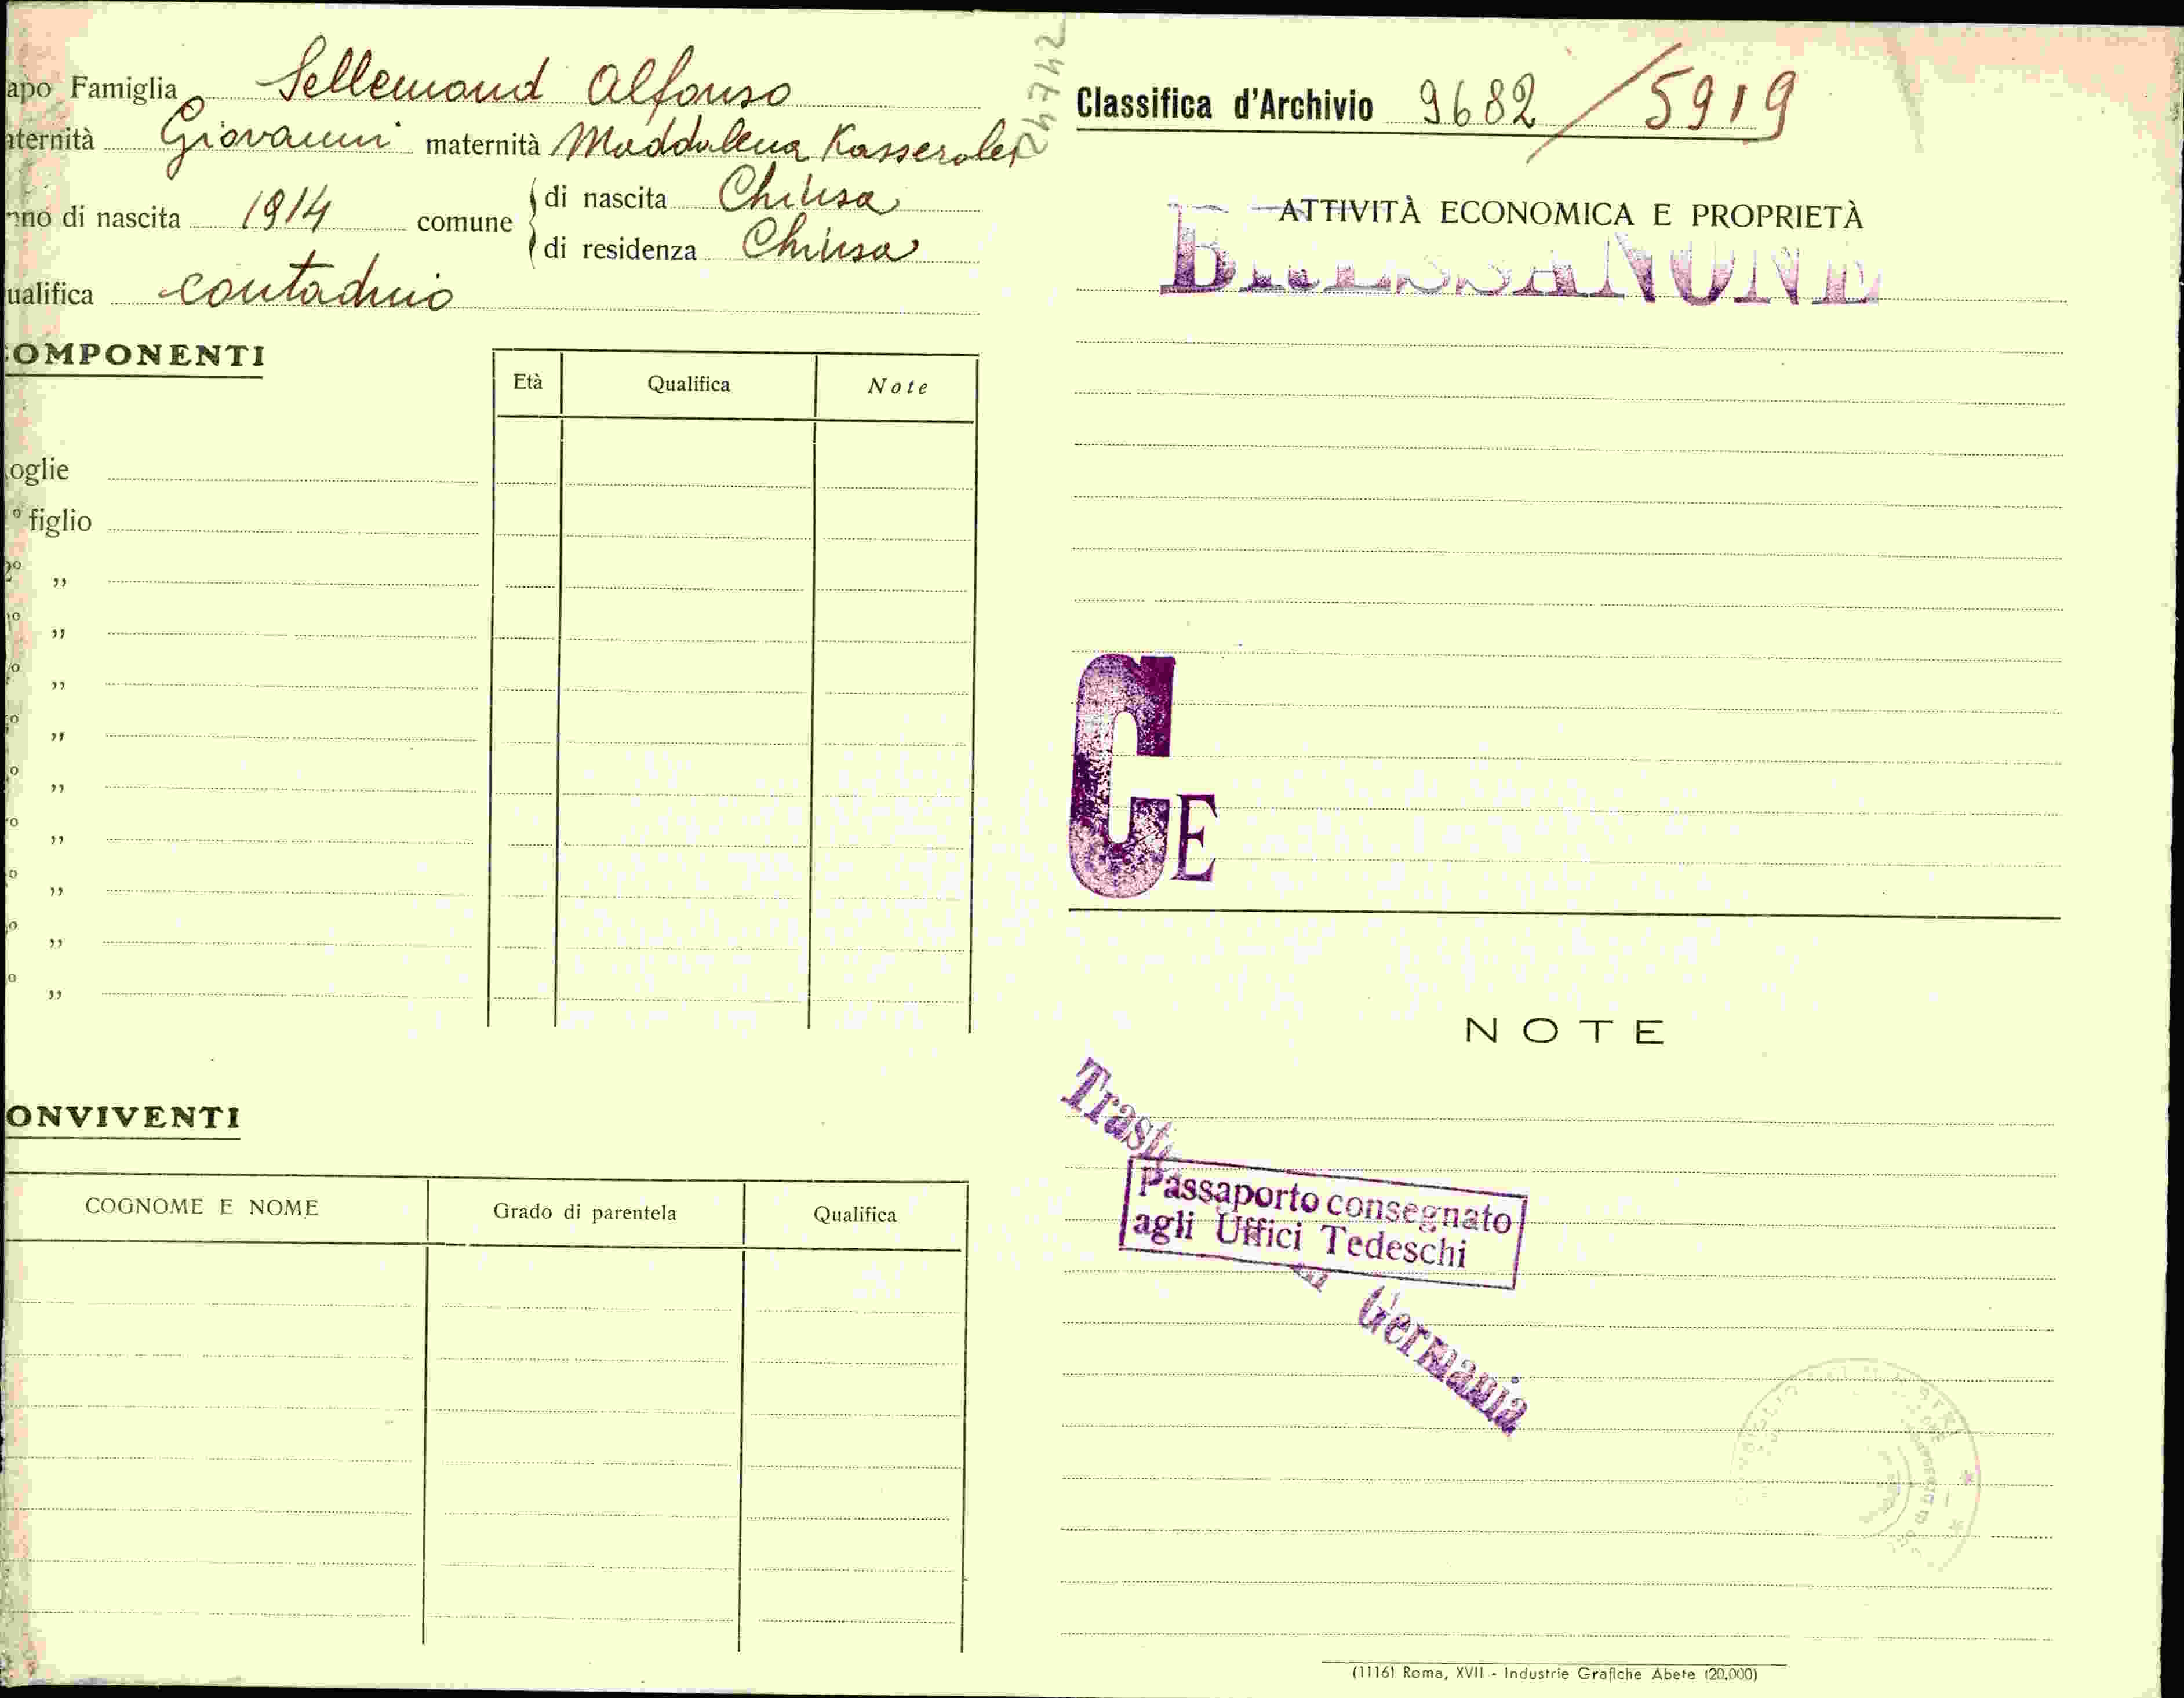 apo Famiglia Sellemond Alfonso
aternità Giovanni maternità Maddalena Kasseroler
nno di nascita 1914 comune di nascita Chiusa
di residenza Chiusa
ualifica contadino
24742
OMPONENTI
Età Qualifica Note
oglie
º figlio
2º „
º „
º „
º „
º „
º „
º „
º „
º „
ONVIVENTI
COGNOME E NOME Grado di parentela Qualifica
Classifica d'Archivio 9682/5919
ATTIVITÀ ECONOMICA E PROPRIETÀ
BRESSANONE
CE
NOTE
Passaporto consegnato
agli Uffici Tedeschi
Germania
(1116) Roma, XVII - Industrie Grafiche Abete (20.000)